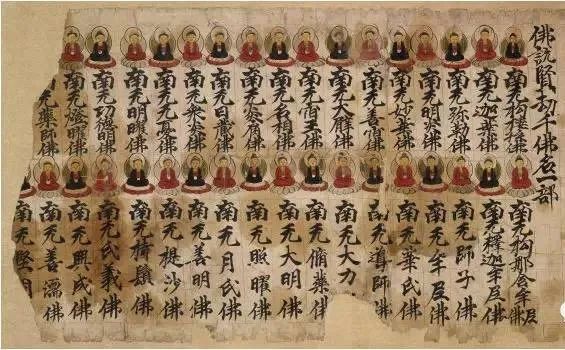 佛説賢劫千佛名一部
南无拘樓佛
南无迦葉佛
南无弥勒佛
南无明炎佛
南无妙華佛
南无善宿佛
南无大臂佛
南无宿王佛
南无名相佛
南无炎肩佛
南无日藏佛
南无衆炎佛
南无无憂佛
南无明曜佛
南无功德明佛
南无燈曜佛
无藥師佛
南无拘那含牟尼佛
南无釋迦牟尼佛
南无師子佛
南无牟尼佛
南无華氏佛
南无導師佛
南无大力
南无脩藥佛
南无大明佛
南无照曜佛
南无月氏佛
南无善明佛
南无提沙佛
南无持鬘佛
南无氏義佛
南无興成佛
南无善濡佛
南无堅明